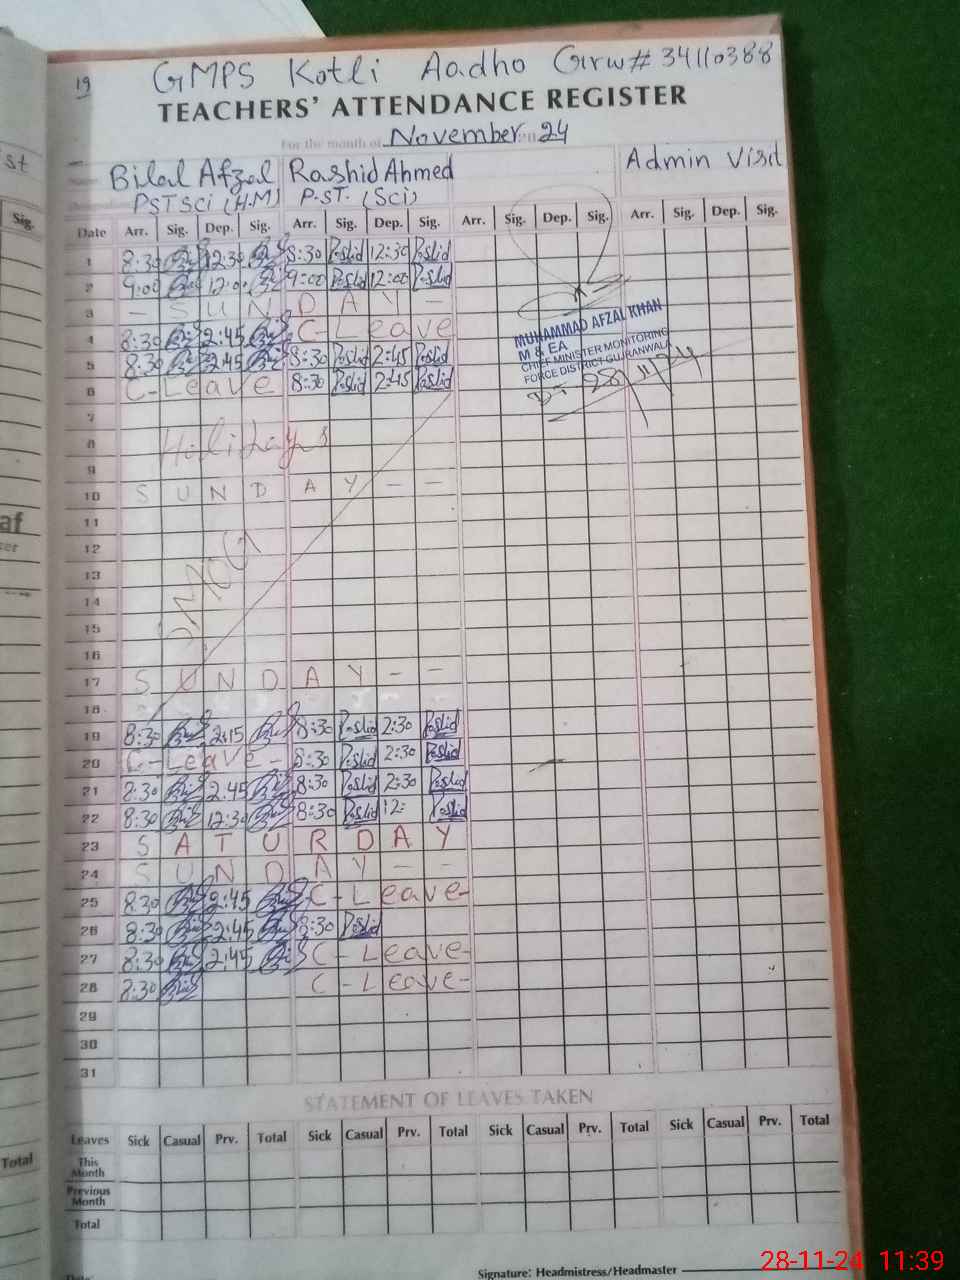 19
GMPS Kotli Aadho Grw# 34110388
TEACHERS' ATTENDANCE REGISTER
For the month of November 2024
Bilal Afzal Rashid Ahmed Admin Visit
PSTSci (H.M) P.ST. (Sci)
Date Arr. Sig. Dep. Sig. Arr. Sig. Dep. Sig. Arr. Sig. Dep. Sig. Arr. Sig. Dep. Sig.
1 8:30 12:30 8:30 Rashid 12:30 Rashid
2 9:00 12:00 9:00 Rashid 12:00 Rashid
3 - S U N D A Y -
4 8:30 2:45 C-Leave
5 8:30 2:45 8:30 Rashid 2:45 Rashid
6 C-Leave 8:30 Rashid 2:45 Rashid
MUHAMMAD AFZAL KHAN
M & EA
CHIEF MINISTER MONITORING
FORCE DISTRICT GUJRANWALA
Dt 28/11/24
7
8 Holidays
9
10 S U N D A Y - -
11
12
SMOG
13
14
15
16
17 S U N D A Y - -
18
19 8:30 2:15 8:30 Rashid 2:30 Rashid
20 C-Leave- 8:30 Rashid 2:30 Rashid
21 8:30 2:45 8:30 Rashid 2:30 Rashid
22 8:30 12:30 8:30 Rashid 12: Rashid
23 S A T U R D A Y
24 S U N D A Y - -
25 8:30 2:45 C-Leave-
26 8:30 2:45 8:30 Rashid
27 8:30 2:45 C-Leave-
28 8:30 C-Leave-
29
30
31
STATEMENT OF LEAVES TAKEN
Leaves Sick Casual Prv. Total Sick Casual Prv. Total Sick Casual Prv. Total Sick Casual Prv. Total
This Month
Previous Month
Total
Signature: Headmistress/Headmaster
st
Sig.
af
Total
28-11-24 11:39